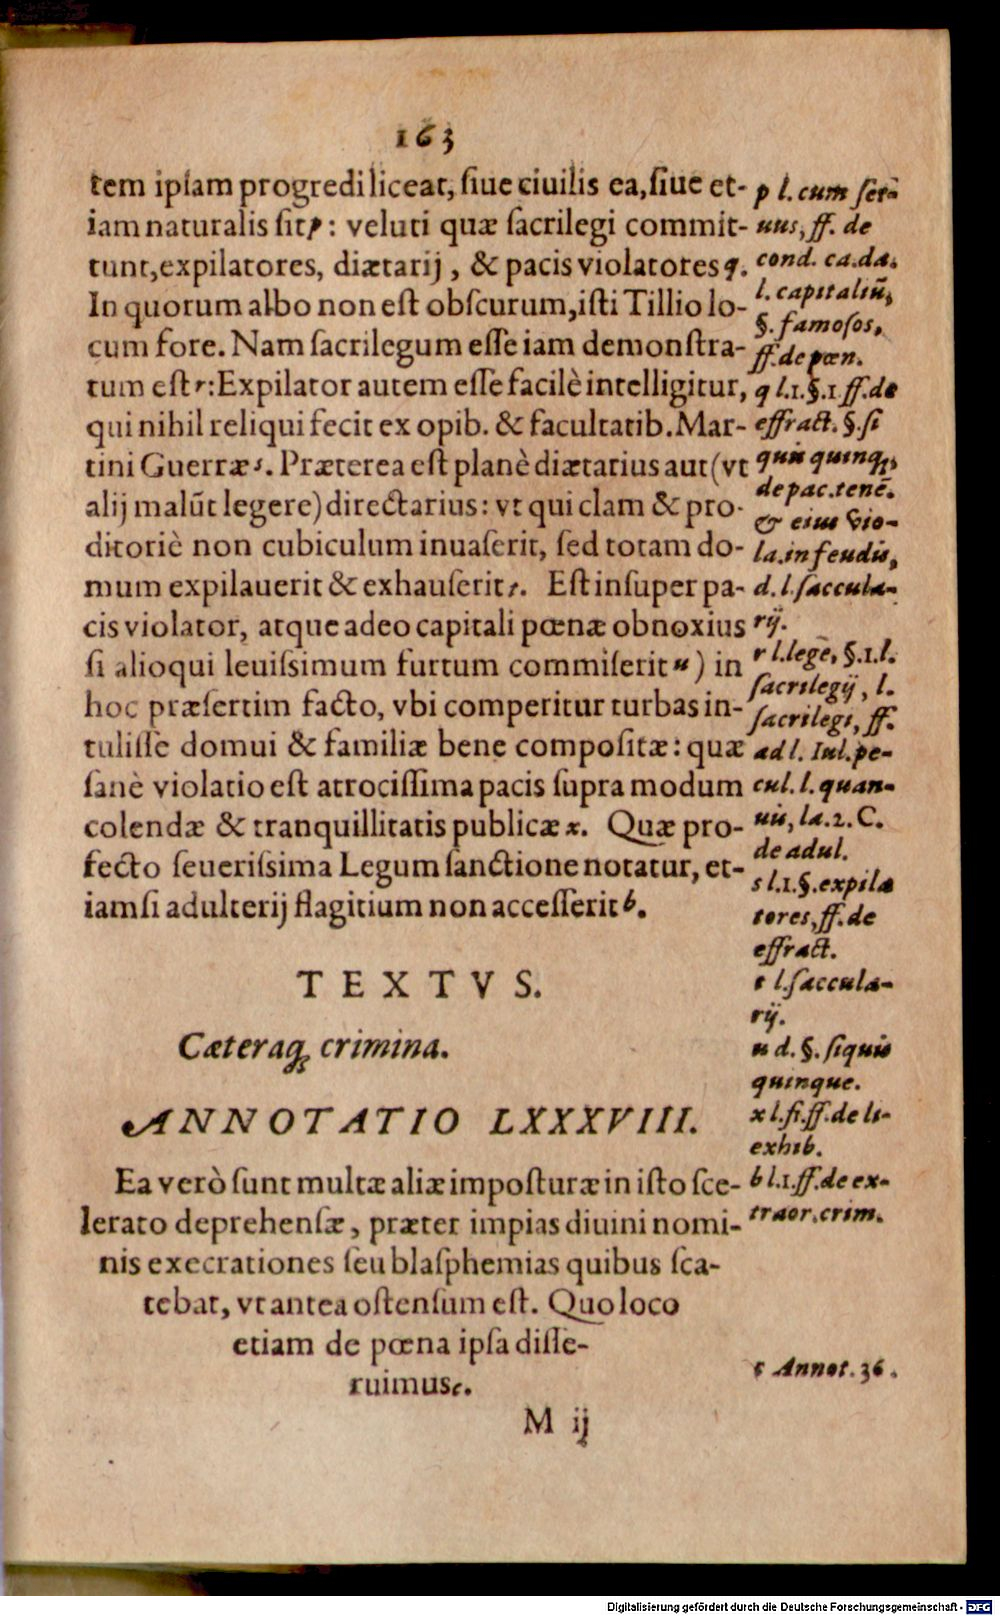 163
tem ipſam progredi liceat, ſiue ciuilis ea, ſiue et-
iam naturalis ſit p: veluti quæ ſacrilegi commit-
tunt, expilatores, diætarij, & pacis violatores q.
In quorum albo non eſt obſcurum, iſti Tillio lo-
cum fore. Nam ſacrilegum eſſe iam demonſtra-
tum eſt r: Expilator autem eſſe facilè intelligitur,
qui nihil reliqui fecit ex opib. & facultatib. Mar-
tini Guerræ s. Præterea eſt planè diætarius aut (vt
alij malūt legere) directarius: vt qui clam & pro-
ditoriè non cubiculum inuaſerit, ſed totam do-
mum expilauerit & exhauſerit t. Eſt inſuper pa-
cis violator, atque adeo capitali pœnæ obnoxius
ſi alioqui leuiſsimum furtum commiſerit u) in
hoc præſertim facto, vbi comperitur turbas in-
tuliſſe domui & familiæ bene compoſitæ: quæ
ſanè violatio eſt atrociſſima pacis ſupra modum
colendæ & tranquillitatis publicæ x. Quæ pro-
fecto ſeueriſsima Legum ſanctione notatur, et-
iamſi adulterij flagitium non acceſſerit b.
TEXTVS.
Cæteraq; crimina.
ANNOTATIO LXXXVIII.
Ea verò ſunt multæ aliæ impoſturæ in iſto ſce-
lerato deprehenſæ, præter impias diuini nomi-
nis execrationes ſeu blaſphemias quibus ſca-
tebat, vt antea oſtenſum eſt. Quo loco
etiam de pœna ipſa diſſe-
ruimus c.
M ij
p l. cum ſer-
uus, ff. de
cond. ca. da.
l. capitaliū,
§. famoſos,
ff. de pœn.
q l.1. §.1 ff. de
effract. §. ſi
quis quinq;,
de pac. tenē.
& eius vio-
la. in feudis,
d. l. ſaccula-
rij.
r l. lege, §.1. l.
ſacrilegij, l.
ſacrilegi, ff.
ad l. Iul. pe-
cul. l. quan-
uis, la. 2. C.
de adul.
s l.1. §. expila
tores, ff. de
effract.
t l. ſaccula-
rij.
u d. §. ſi quis
quinque.
x l. fi. ff. de li-
exhib.
b l.1. ff. de ex-
traor. crim.
c Annot. 36.
Digitalisierung gefördert durch die Deutsche Forschungsgemeinschaft - DFG